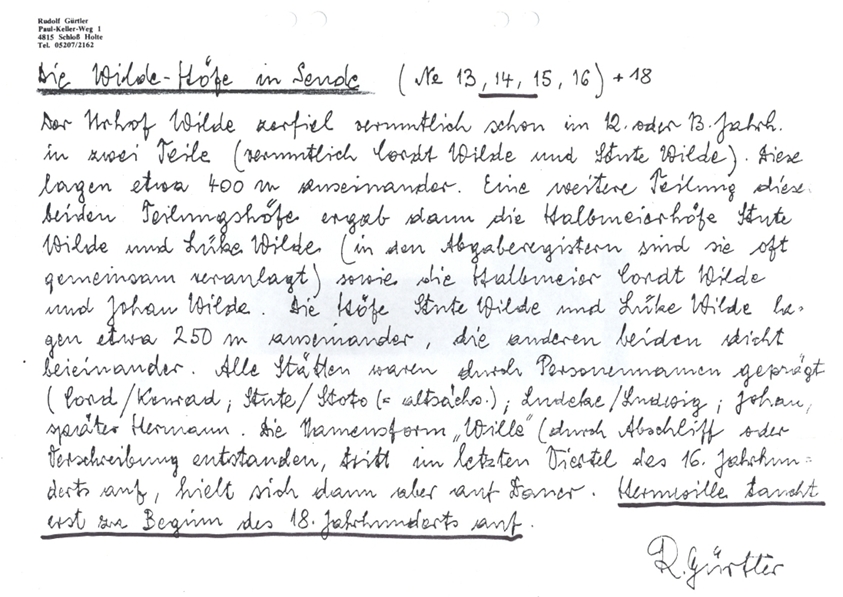 Rudolf Gürtler
Paul-Keller-Weg 1
4815 Schloß Holte
Tel. 05207/2162
Die Wilde-Höfe in Sende (No 13, 14, 15, 16) + 18
Der Urhof Wilde zerfiel vermutlich schon im 12. oder 13. Jahrh.
in zwei Teile (vermutlich Cordt Wilde und Stute Wilde). Diese
lagen etwa 400 m auseinander. Eine weitere Teilung diese
beiden Teilungshöfe ergab dann die Halbmeierhöfe Stute
Wilde und Lüke Wilde (in den Abgaberegistern sind sie oft
gemeinsam veranlagt) sowie die Halbmeier Cordt Wilde
und Johan Wilde. Die Höfe Stute Wilde und Lüke Wilde la-
gen etwa 250 m auseinander, die anderen beiden dicht
beieinander. Alle Stätten waren durch Personennamen geprägt
(Cord/Konrad; Stute/Stoto (= altsächs.); Ludeke/Ludwig; Johan,
später Hermann. Die Namensform „Wille" (durch Abschliff oder
Verschreibung entstanden, tritt im letzten Viertel des 16. Jahrhun-
derts auf, hielt sich dann aber auf Dauer. Hermwille taucht
erst zu Beginn des 18. Jahrhunderts auf.
R. Gürtler